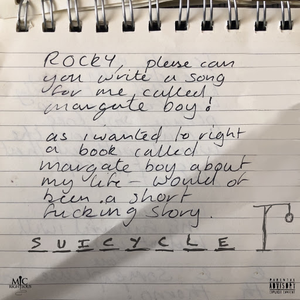 ROCKY, please can
you write a song
for me called
margate boy!
as i wanted to right
a book called
margate boy about
my life - would of
been a short
fucking story.
S U I C Y C L E
PARENTAL
ADVISORY
EXPLICIT CONTENT